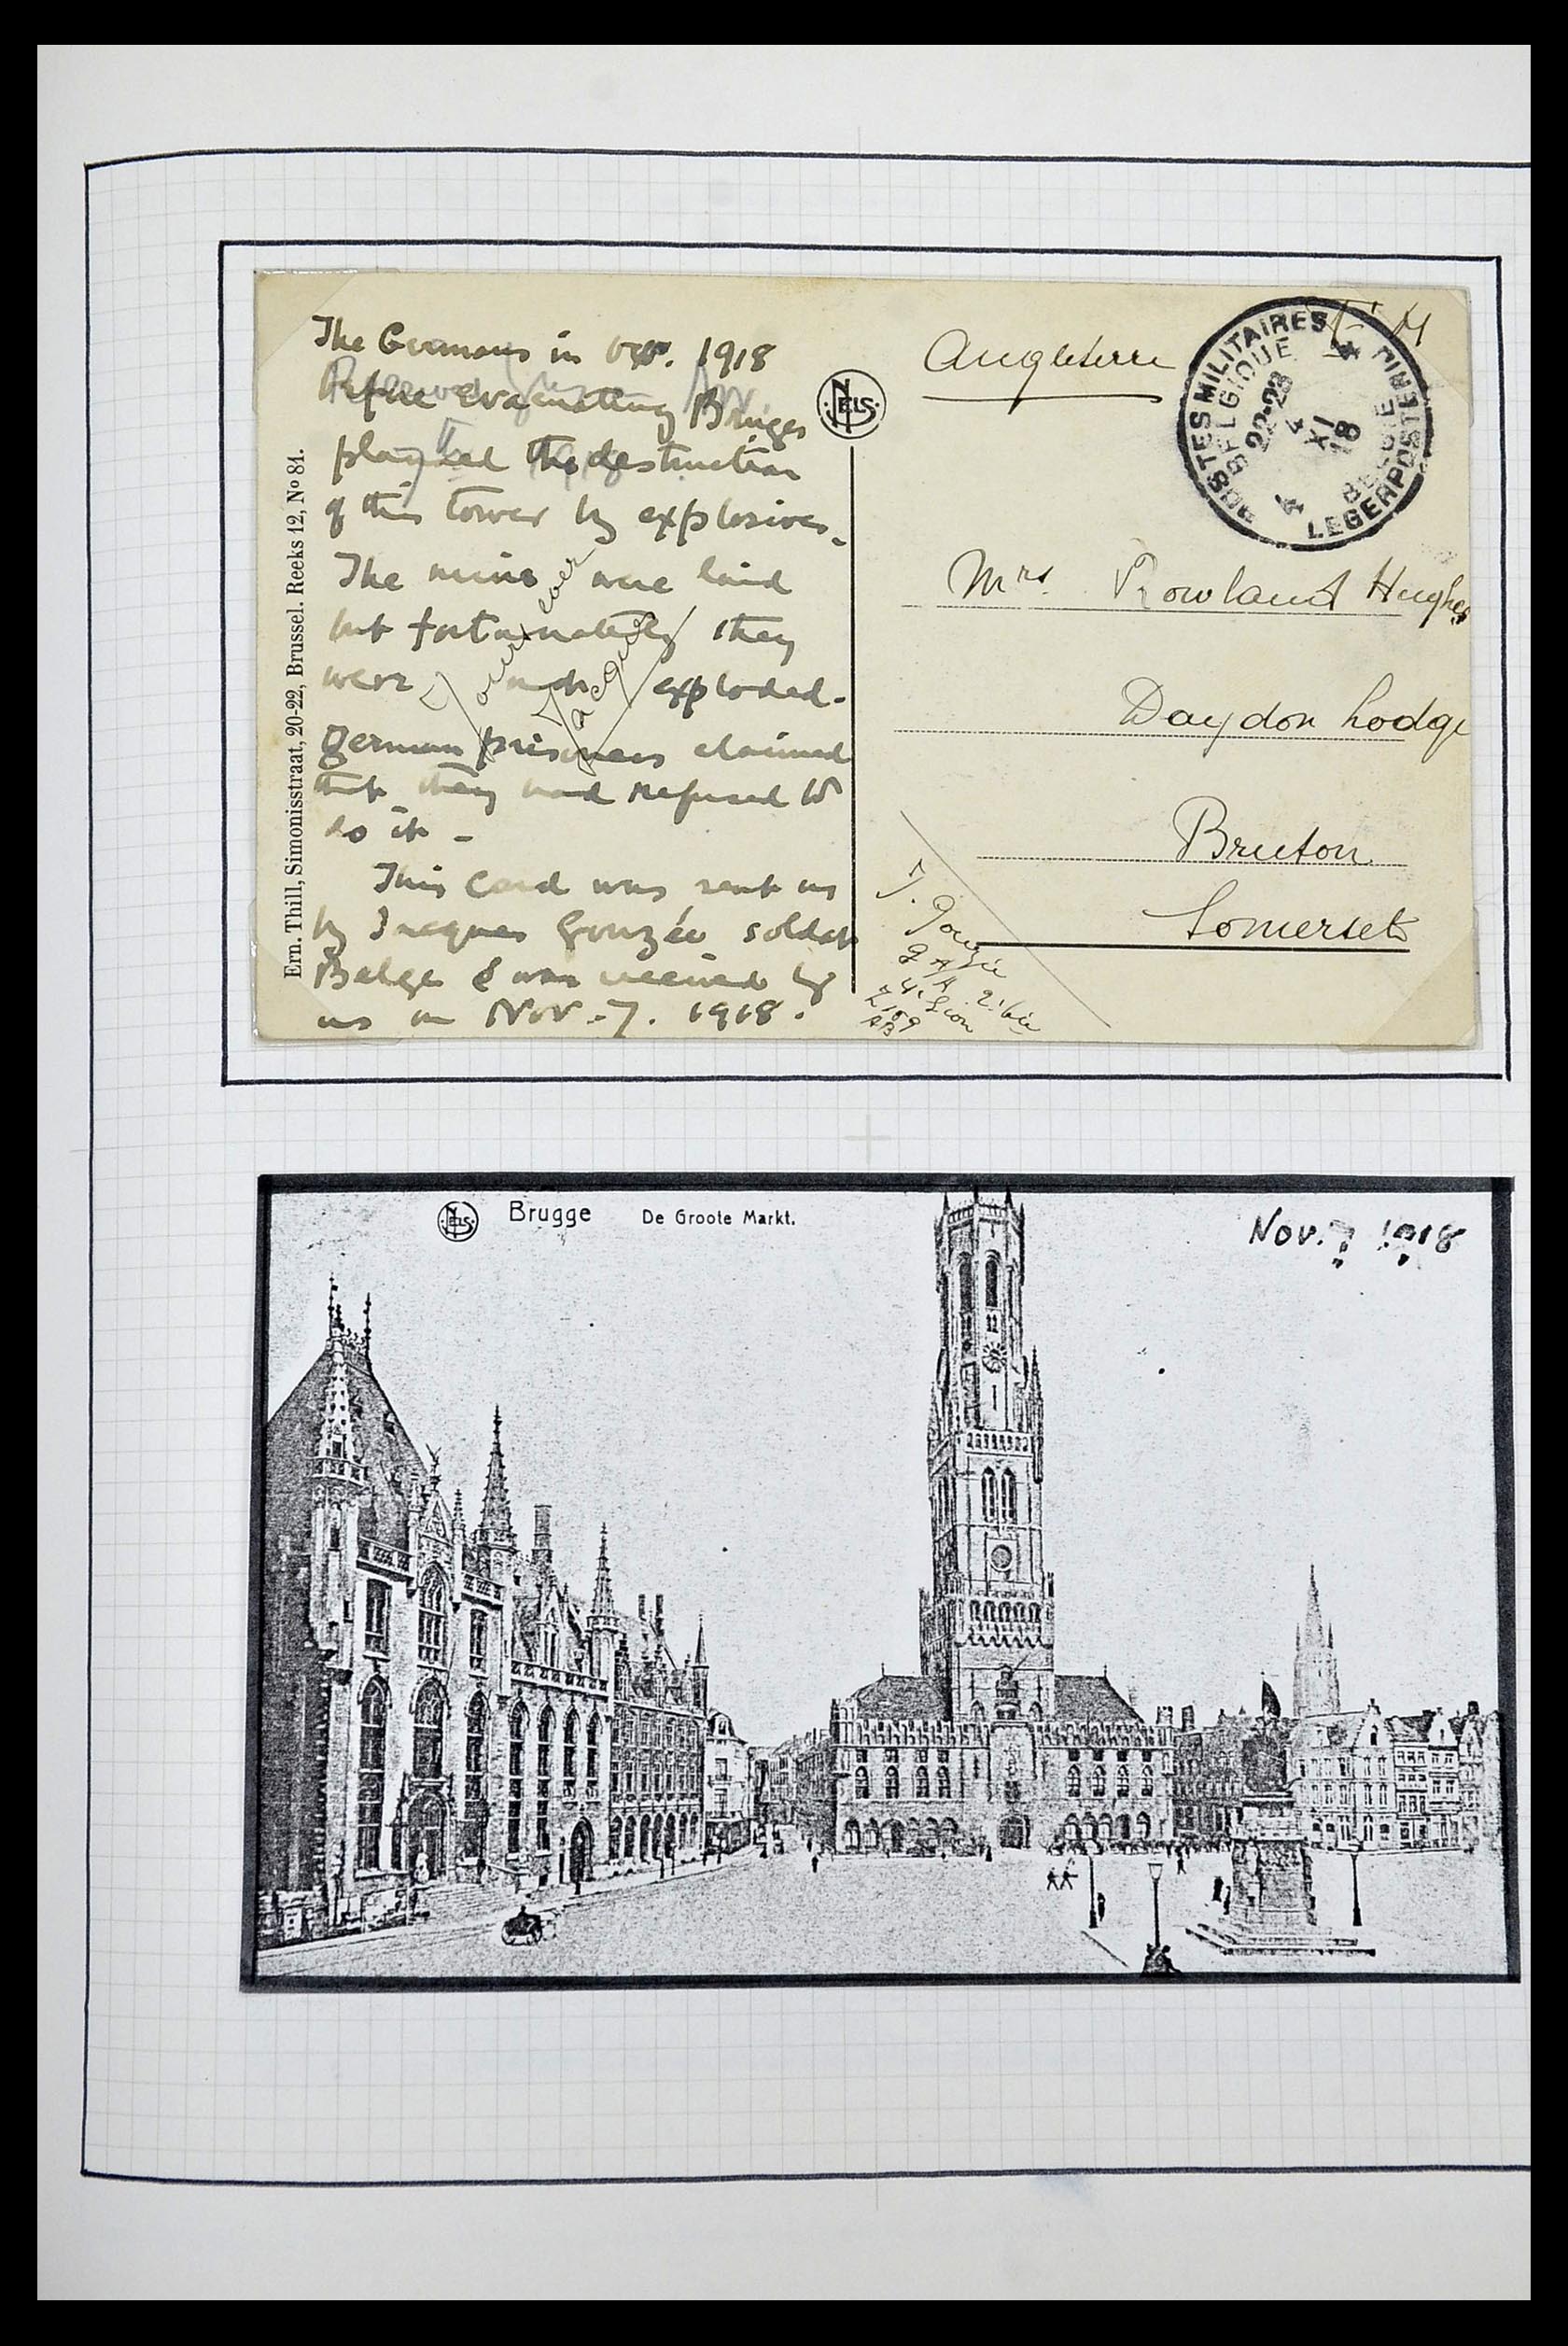 The Germans in Oct. 1918
Before evacuating Bruges
planned the destruction
of this tower by explosives.
The mines were laid
but fortunately they
were not exploded.
German prisoners claimed
that they had refused to
do it -
This Card was sent us
by Jacques Gouzée soldat
Belge & was received by
us on Nov. 7. 1918.
Ern. Thill, Simonisstraat, 20-22, Brussel. Reeks 12, No 81.
NELS
Angleterre
POSTES MILITAIRES
BELGIQUE
22-23
4
XI
18
4
BELGIE
LEGERPOSTERIJ
Mrs. Rowland Hughes
Daydon Lodge
Bruton
Somerset
J. Gouzée
Z 159
NELS
Brugge De Groote Markt.
Nov. 7 1918